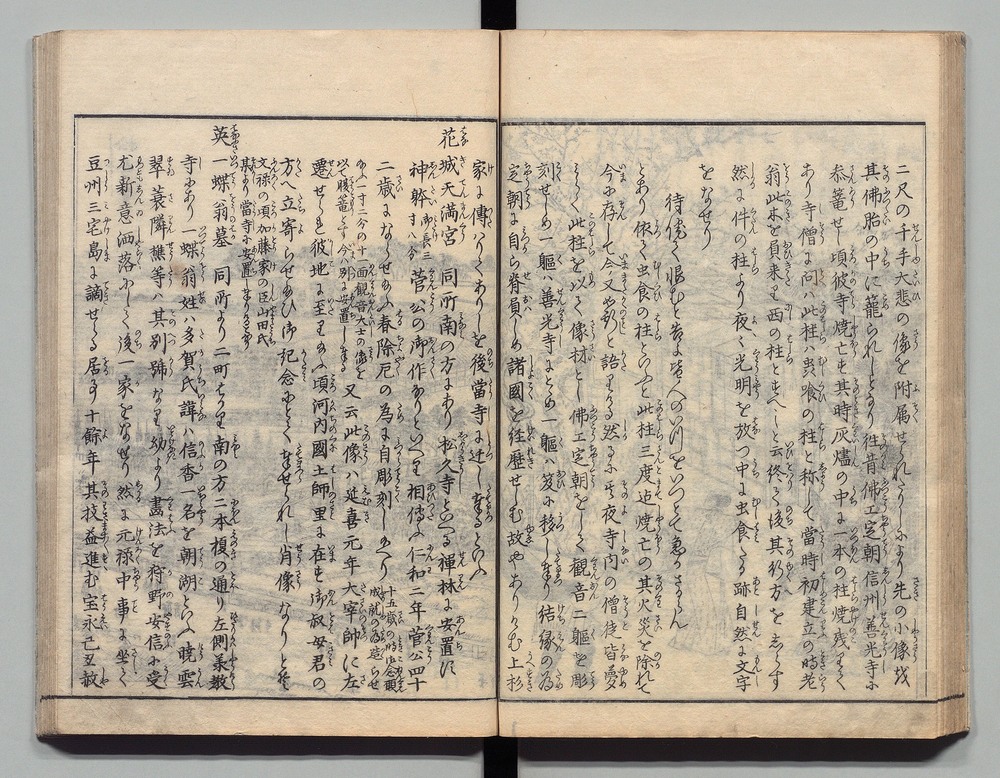 二尺の千手大悲の像を附属せられたりしにより先の小像我
其佛胎の中に籠られしとあり徃昔佛工定朝信州善光寺に
参篭せし頃彼寺焼亡も其時灰燼の中に一本の柱焼残りて
あり寺僧に問ハ此柱虫喰の柱と称して當時初建立の時老
翁此木を負来り西の柱とすへしと云終て後其行方を志らす
然に件の柱より夜々光明を放つ中に虫食たる跡自然に文字
をなせり
待侘て恨むと告よ皆人へのいつをいつとて急かさるらん
とあり依て虫食の柱といへと此柱三度迄焼亡の其火災を除れて
今に存して今又かくのと語りける然るに其夜寺内の僧徒皆夢
て此柱を以て像材とし佛工定朝をして觀音二軀を彫
刻せしめ一軀ハ善光寺にとゝめ一軀ハ笈に移しまいり結縁の為
定朝に自ら脊負しめ諸國を経歴せしむ故やありけむ上杉
家に傳ハりてありしを後當寺に迁し奉るといふ
花城天満宮 同所南の方にあり松久寺といへる禅林に安置す
神躰 御長三寸八分 菅公の御作なりといへり相傳ふ仁和二年菅公四十
二歳にならせ給ふ春除厄の為に自彫刻し給へり 十五歳の時御念願成就の為
一寸二分の十一面觀音大士の像を以て腹籠とす今ハ別に安置しまゐる 又云此像ハ延喜元年大宰帥に左
遷せられ彼地に至り給ふ頃河内國土師里に在す御叔母君の
方へ立寄らせ給ひ御記念にとて奉せられし肖像なりとそ
文禄の頃加藤家の臣山田氏某より當寺に安置しまゐる
英一蝶翁墓 同所より二町はかり南の方二本榎の通り左側承教
寺にあり一蝶翁姓ハ多賀氏諱ハ信香一名を朝湖といふ暁雲
翠蓑隣樵等ハ其別號なり幼より畫法を狩野安信に受
尤新意洒落にして後一家をなせり然に元禄中事に坐して
豆州三宅島に謫せらる居事十餘年其技益進む宝永己丑赦